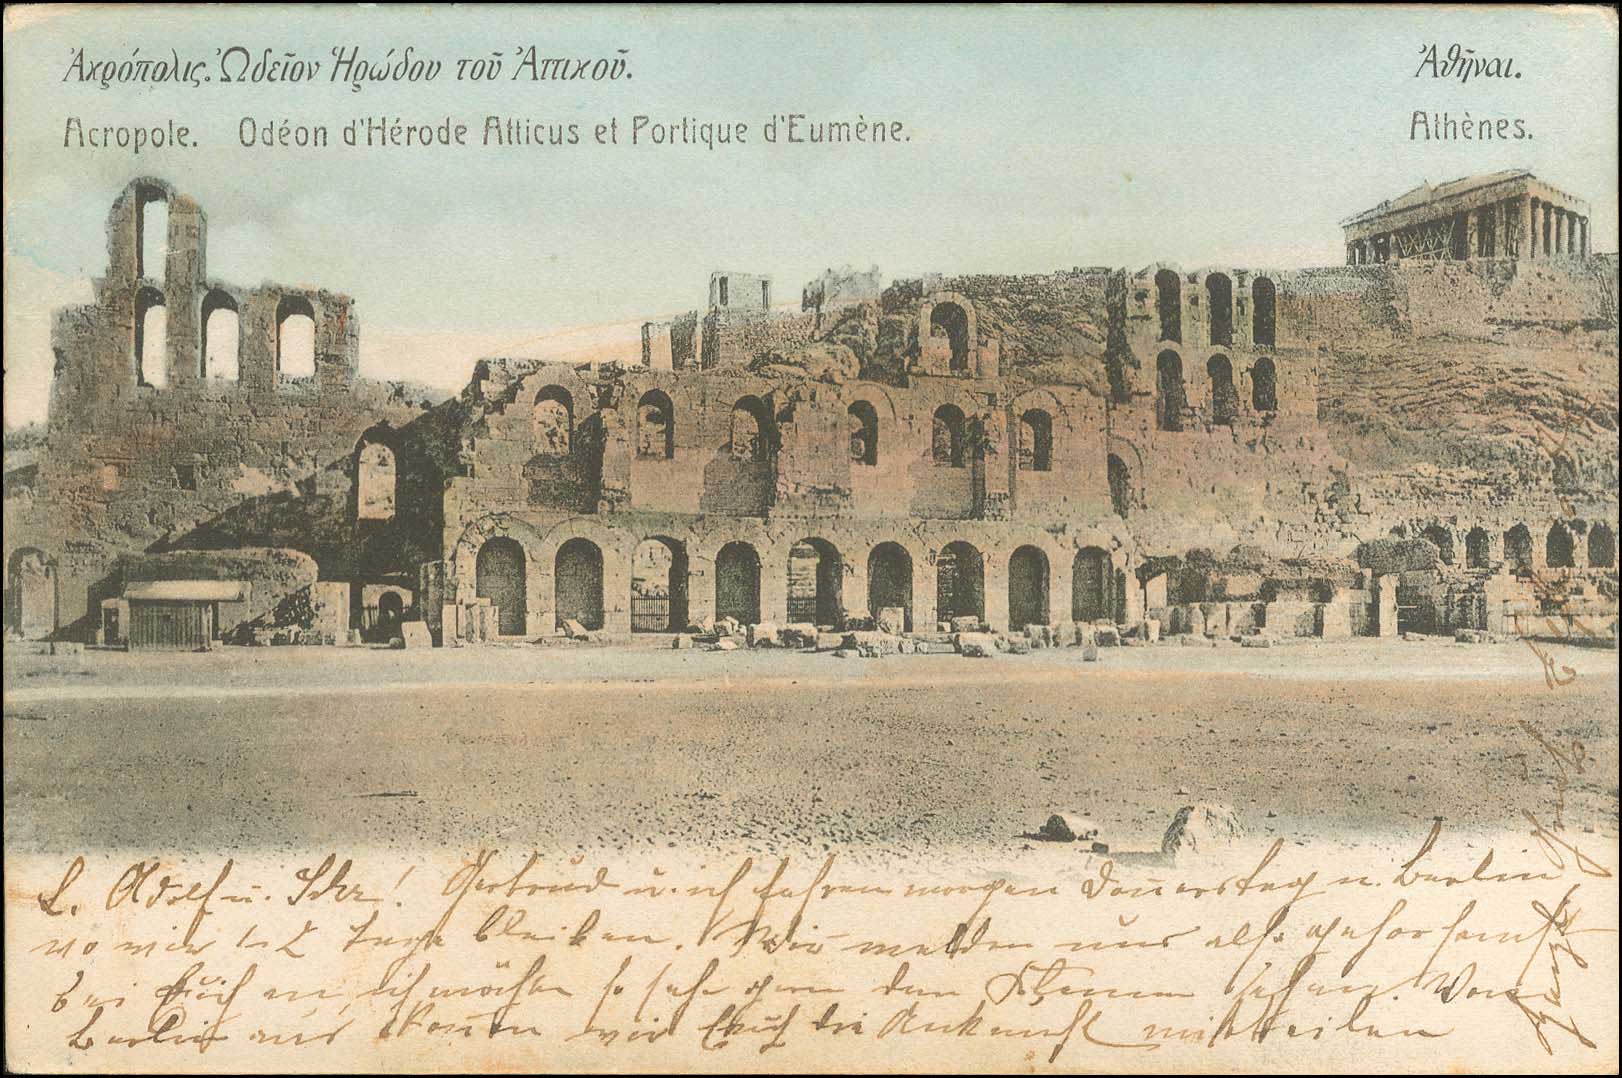 Ἀκρόπολις. Ὠδεῖον Ἡρώδου τοῦ Ἀττικοῦ.
Ἀθῆναι.
Acropole. Odéon d'Hérode Atticus et Portique d'Eumène.
Athènes.
L. Adolf u. Ida! Gertrud u. ich fahren morgen Donnerstag n. Berlin
wo wir 1-2 Tage bleiben. Wir melden uns also gehorsamst
bei Euch an, ich möchte so sehr gern den Kleinen sehen. Von
Berlin aus können wir Euch die Ankunft mitteilen